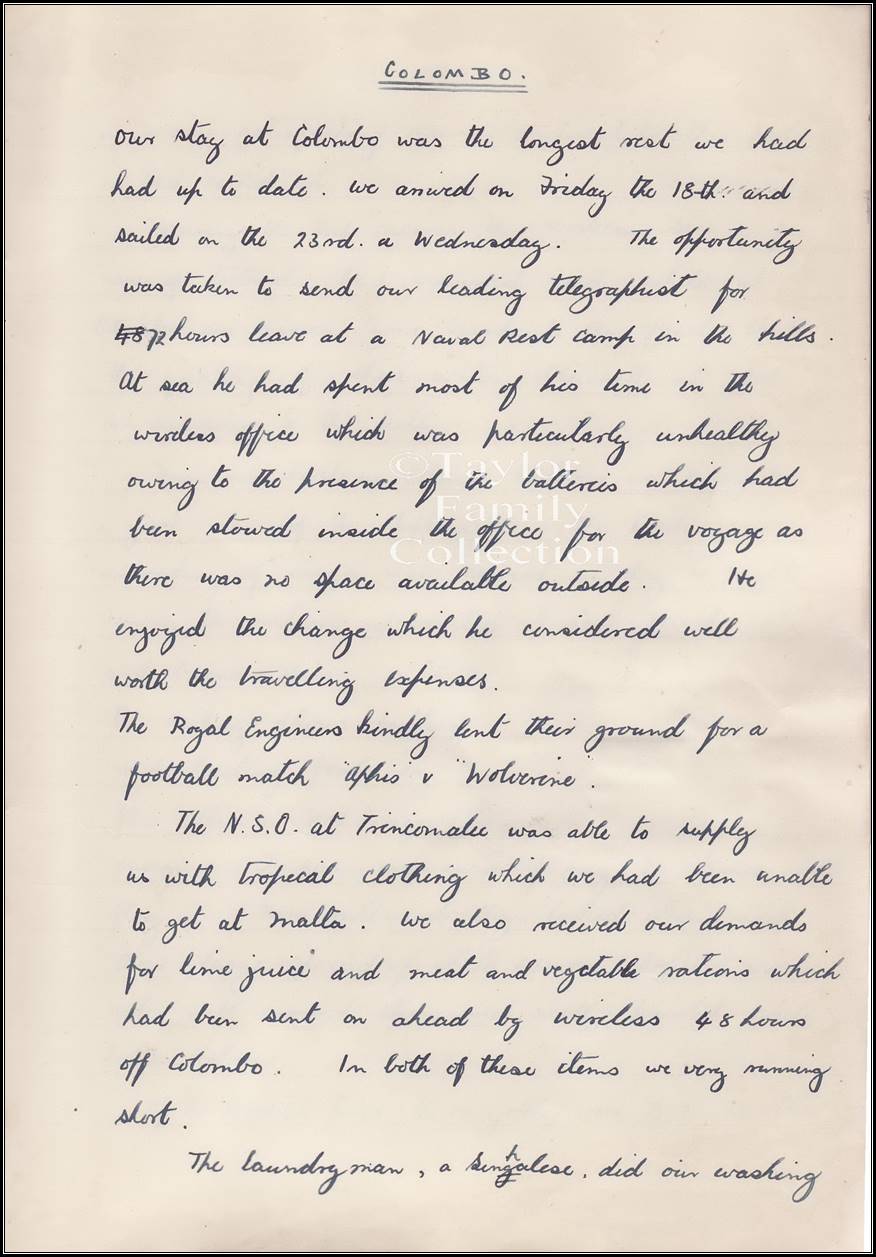 COLOMBO.
Our stay at Colombo was the longest rest we had
had up to date. We arrived on Friday the 18th. and
sailed on the 23rd. a Wednesday. The opportunity
was taken to send our leading telegraphist for
48 72 hours leave at a Naval Rest Camp in the hills.
At sea he had spent most of his time in the
wireless office which was particularly unhealthy
owing to the presence of the batteries which had
been stowed inside the office for the voyage as
there was no space available outside. He
enjoyed the change which he considered well
worth the travelling expenses.
The Royal Engineers kindly lent their ground for a
football match "Aphis" v "Wolverine".
The N.S.O. at Trincomalee was able to supply
us with tropical clothing which we had been unable
to get at Malta. We also received our demands
for lime juice and meat and vegetable rations which
had been sent on ahead by wireless 48 hours
off Colombo. In both of these items we very running
short.
The laundry man, a Singhalese, did our washing
©Taylor
Family
Collection